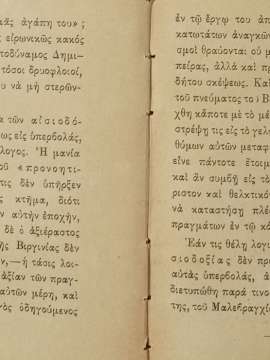 μιᾶς ἀγάπη του» ;
ς εἰρωνικῶς κακός
τοδύναμος Δημι-
τόσοι δρυοφλοιοί,
υ νὰ μὴ στερῶν-
α τῶν αἰσιοδό-
ως εἰς ὑπερβολάς,
λογος. Ἡ μανία
οῦ «προνοητι-
τις δὲν ὑπῆρξεν
ς κτῆμα, διότι
ν αὐτὴν ἐποχήν,
ς δὲ ὁ ἀξιέραστος
ῆς Βιργινίας δὲν
ν,—ἡ τάσις λοι-
ἀξίαν τῶν πραγ-
αὐτῶν μέρη, καὶ
νὸς ὁδηγούμενος
ἐν τῷ ἔργῳ του ἀπ
κατωτάτων ἀναγκῶν
σμοὶ θραύονται οὐ μ
πείρας, ἀλλὰ καὶ πρ
δήτου σκέψεως. Καὶ
τοῦ πνεύματος τοῦ Β
χθη κάποτε μὲ τὸ μέ
στρέψῃ τις εἰς τὸ γελ
θύμων αὐτῶν μεταφ
εἶνε πάντοτε ἕτοιμ
καὶ ἂν συμβῇ εἰς τὸ
ριστον καὶ θελκτικό
νὰ καταστήσῃ πλέ
πραγμάτων ἐν τῷ κό
Ἐάν τις θέλῃ λογι
σιοδοξίας δὲν πρ
αὐτὰς ὑπερβολάς, ἀ
διετυπώθη παρά τινο
της, τοῦ Μαλεβραγχί